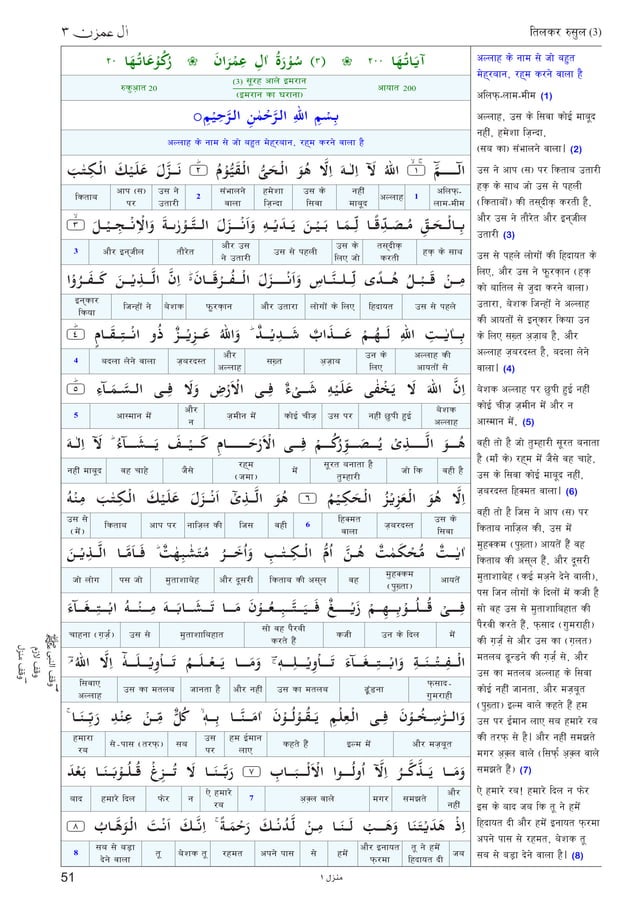 اٰل عمرٰن ٣
तिलकर रुसुल (3)
اٰيَاتُهَا ٢٠٠ ❀ (٣) سُوْرَةُ اٰلِ عِمْرٰنَ ❀ رُكُوْعَاتُهَا ٢٠
आयात 200 (3) सूरह आले इमरान (इमरान का घराना) रुकुआ़त 20
بِسْمِ اللّٰهِ الرَّحْمٰنِ الرَّحِيْمِ
अल्लाह के नाम से जो बहुत मेह्रबान, रह्म करने वाला है
الٓمّٓ ١ اللّٰهُ لَآ اِلٰهَ اِلَّا هُوَ الْحَيُّ الْقَيُّوْمُ ٢ نَزَّلَ عَلَيْكَ الْكِتٰبَ
अलिफ़-लाम-मीम 1 अल्लाह नहीं माबूद उस के सिवा हमेशा ज़िन्दा संभालने वाला 2 उस ने उतारी आप (स) पर किताब
بِالْحَقِّ مُصَدِّقًا لِّمَا بَيْنَ يَدَيْهِ وَاَنْزَلَ التَّوْرٰىةَ وَالْاِنْجِيْلَ ٣
हक़ के साथ तस्दीक़ करती उस के लिए जो उस से पहली और उस ने उतारी तौरेत और इन्जील 3
مِنْ قَبْلُ هُدًى لِّلنَّاسِ وَاَنْزَلَ الْفُرْقَانَ اِنَّ الَّذِيْنَ كَفَرُوْا
उस से पहले हिदायत लोगों के लिए और उतारा फ़ुरक़ान बेशक जिन्हों ने इन्कार किया
بِاٰيٰتِ اللّٰهِ لَهُمْ عَذَابٌ شَدِيْدٌ وَاللّٰهُ عَزِيْزٌ ذُو انْتِقَامٍ ٤
अल्लाह की आयतों से उन के लिए अ़ज़ाब सख़्त और अल्लाह ज़बरदस्त बदला लेने वाला 4
اِنَّ اللّٰهَ لَا يَخْفٰى عَلَيْهِ شَىْءٌ فِى الْاَرْضِ وَلَا فِى السَّمَآءِ ٥
बेशक अल्लाह नहीं छुपी हुई उस पर कोई चीज़ ज़मीन में और न आस्मान में 5
هُوَ الَّذِىْ يُصَوِّرُكُمْ فِى الْاَرْحَامِ كَيْفَ يَشَآءُ لَآ اِلٰهَ
वही है जो कि सूरत बनाता है तुम्हारी में रह्म (जमा) जैसे वह चाहे नहीं माबूद
اِلَّا هُوَ الْعَزِيْزُ الْحَكِيْمُ ٦ هُوَ الَّذِىْٓ اَنْزَلَ عَلَيْكَ الْكِتٰبَ مِنْهُ
उस के सिवा ज़बरदस्त हिक्मत वाला 6 वही जिस नाज़िल की आप पर किताब उस से (में)
اٰيٰتٌ مُّحْكَمٰتٌ هُنَّ اُمُّ الْكِتٰبِ وَاُخَرُ مُتَشٰبِهٰتٌ فَاَمَّا الَّذِيْنَ
आयतें मुहक्कम (पुख़्ता) वह किताब की अस्ल और दूसरी मुताशाबेह पस जो जो लोग
فِىْ قُلُوْبِهِمْ زَيْغٌ فَيَتَّبِعُوْنَ مَا تَشَابَهَ مِنْهُ ابْتِغَآءَ
में उन के दिल कजी सो वह पैरवी करते हैं मुताशाबिहात उस से चाहना (ग़र्ज़)
الْفِتْنَةِ وَابْتِغَآءَ تَاْوِيْلِهٖ وَمَا يَعْلَمُ تَاْوِيْلَهٗٓ اِلَّا اللّٰهُ
फ़साद-गुमराही ढूंडना उस का मतलब और नहीं जानता है उस का मतलब सिवाए अल्लाह
وَالرّٰسِخُوْنَ فِى الْعِلْمِ يَقُوْلُوْنَ اٰمَنَّا بِهٖ كُلٌّ مِّنْ عِنْدِ رَبِّنَا
और मज़बूत इल्म में कहते हैं हम ईमान लाए उस पर सब से-पास (तरफ़) हमारा रब
وَمَا يَذَّكَّرُ اِلَّآ اُولُوا الْاَلْبَابِ ٧ رَبَّنَا لَا تُزِغْ قُلُوْبَنَا بَعْدَ
और नहीं समझते मगर अक़्ल वाले 7 ऐ हमारे रब न फेर हमारे दिल बाद
اِذْ هَدَيْتَنَا وَهَبْ لَنَا مِنْ لَّدُنْكَ رَحْمَةً اِنَّكَ اَنْتَ الْوَهَّابُ ٨
जब तू ने हमें हिदायत दी और इनायत फ़रमा हमें से अपने पास रहमत बेशक तू तू सब से बड़ा देने वाला 8
अल्लाह के नाम से जो बहुत
मेह्रबान, रह्म करने वाला है
अलिफ़-लाम-मीम (1)
अल्लाह, उस के सिवा कोई माबूद
नहीं, हमेशा ज़िन्दा,
(सब का) संभालने वाला। (2)
उस ने आप (स) पर किताब उतारी
हक़ के साथ जो उस से पहली
(किताबों) की तस्दीक़ करती है,
और उस ने तौरेत और इन्जील
उतारी (3)
उस से पहले लोगों की हिदायत के
लिए, और उस ने फ़ुरक़ान (हक़
को बातिल से जुदा करने वाला)
उतारा, बेशक जिन्हों ने अल्लाह
की आयतों से इन्कार किया उन
के लिए सख़्त अ़ज़ाब है, और
अल्लाह ज़बरदस्त है, बदला लेने
वाला। (4)
बेशक अल्लाह पर छुपी हुई नहीं
कोई चीज़ ज़मीन में और न
आस्मान में, (5)
वही तो है जो तुम्हारी सूरत बनाता
है (माँ के) रह्म में जैसे वह चाहे,
उस के सिवा कोई माबूद नहीं,
ज़बरदस्त हिक्मत वाला। (6)
वही तो है जिस ने आप (स) पर
किताब नाज़िल की, उस में
मुहक्कम (पुख़्ता) आयतें हैं वह
किताब की अस्ल हैं, और दूसरी
मुताशाबेह (कई मअ़ने देने वाली),
पस जिन लोगों के दिलों में कजी है
सो वह उस से मुताशाबिहात की
पैरवी करते हैं, फ़साद (गुमराही)
की ग़र्ज़ से और उस का (ग़लत)
मतलब ढूनडने की ग़र्ज़ से, और
उस का मतलब अल्लाह के सिवा
कोई नहीं जानता, और मज़बूत
(पुख़्ता) इल्म वाले कहते हैं हम
उस पर ईमान लाए सब हमारे रब
की तरफ़ से है। और नहीं समझते
मगर अक़्ल वाले (सिर्फ़ अक़्ल वाले
समझते हैं) (7)
ऐ हमारे रब! हमारे दिल न फेर
इस के बाद जब कि तू ने हमें
हिदायत दी और हमें इनायत फ़रमा
अपने पास से रहमत, बेशक तू
सब से बड़ा देने वाला है। (8)
وقف النبي ﷺ
وقف لازم
وقف منزل
منزل ١
51